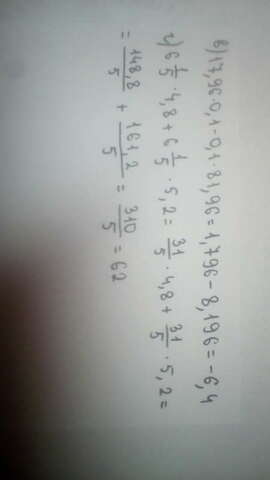 в) 17,96·0,1-0,1·81,96=1,796-8,196=-6,4
г) 6 1/5 · 4,8 + 6 1/5 · 5,2 = 31/5 · 4,8 + 31/5 · 5,2 =
= 148,8/5 + 161,2/5 = 310/5 = 62